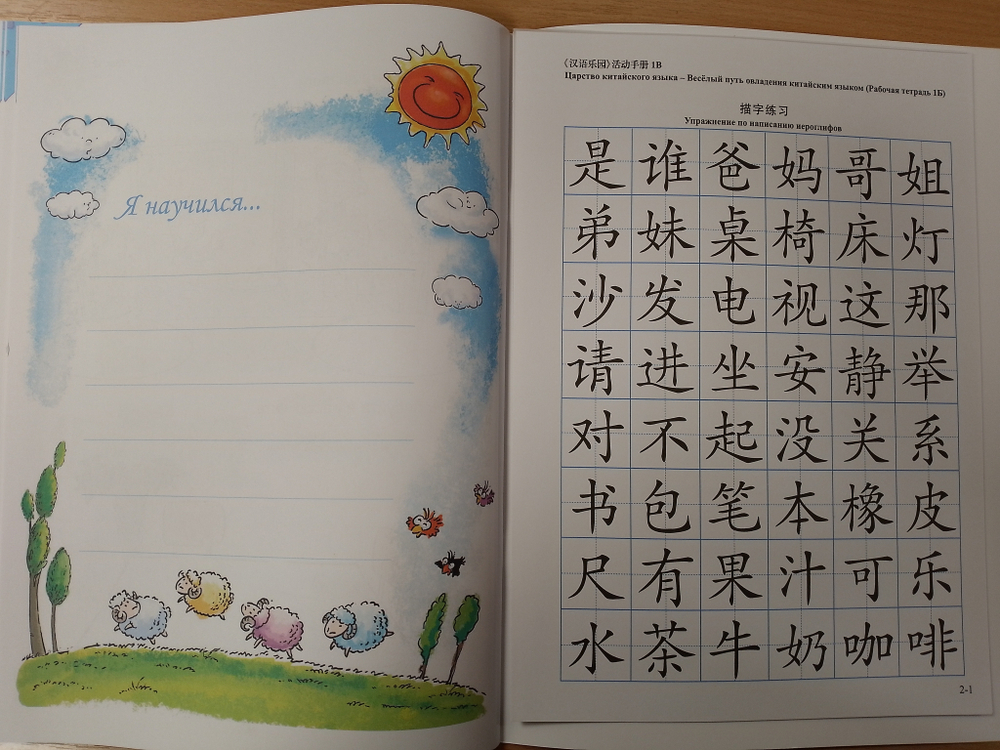 Я научился...
《汉语乐园》活动手册 1B
Царство китайского языка – Весёлый путь овладения китайским языком (Рабочая тетрадь 1Б)
描字练习
Упражнение по написанию иероглифов
是 谁 爸 妈 哥 姐
弟 妹 桌 椅 床 灯
沙 发 电 视 这 那
请 进 坐 安 静 举
对 不 起 没 关 系
书 包 笔 本 橡 皮
尺 有 果 汁 可 乐
水 茶 牛 奶 咖 啡
2-1